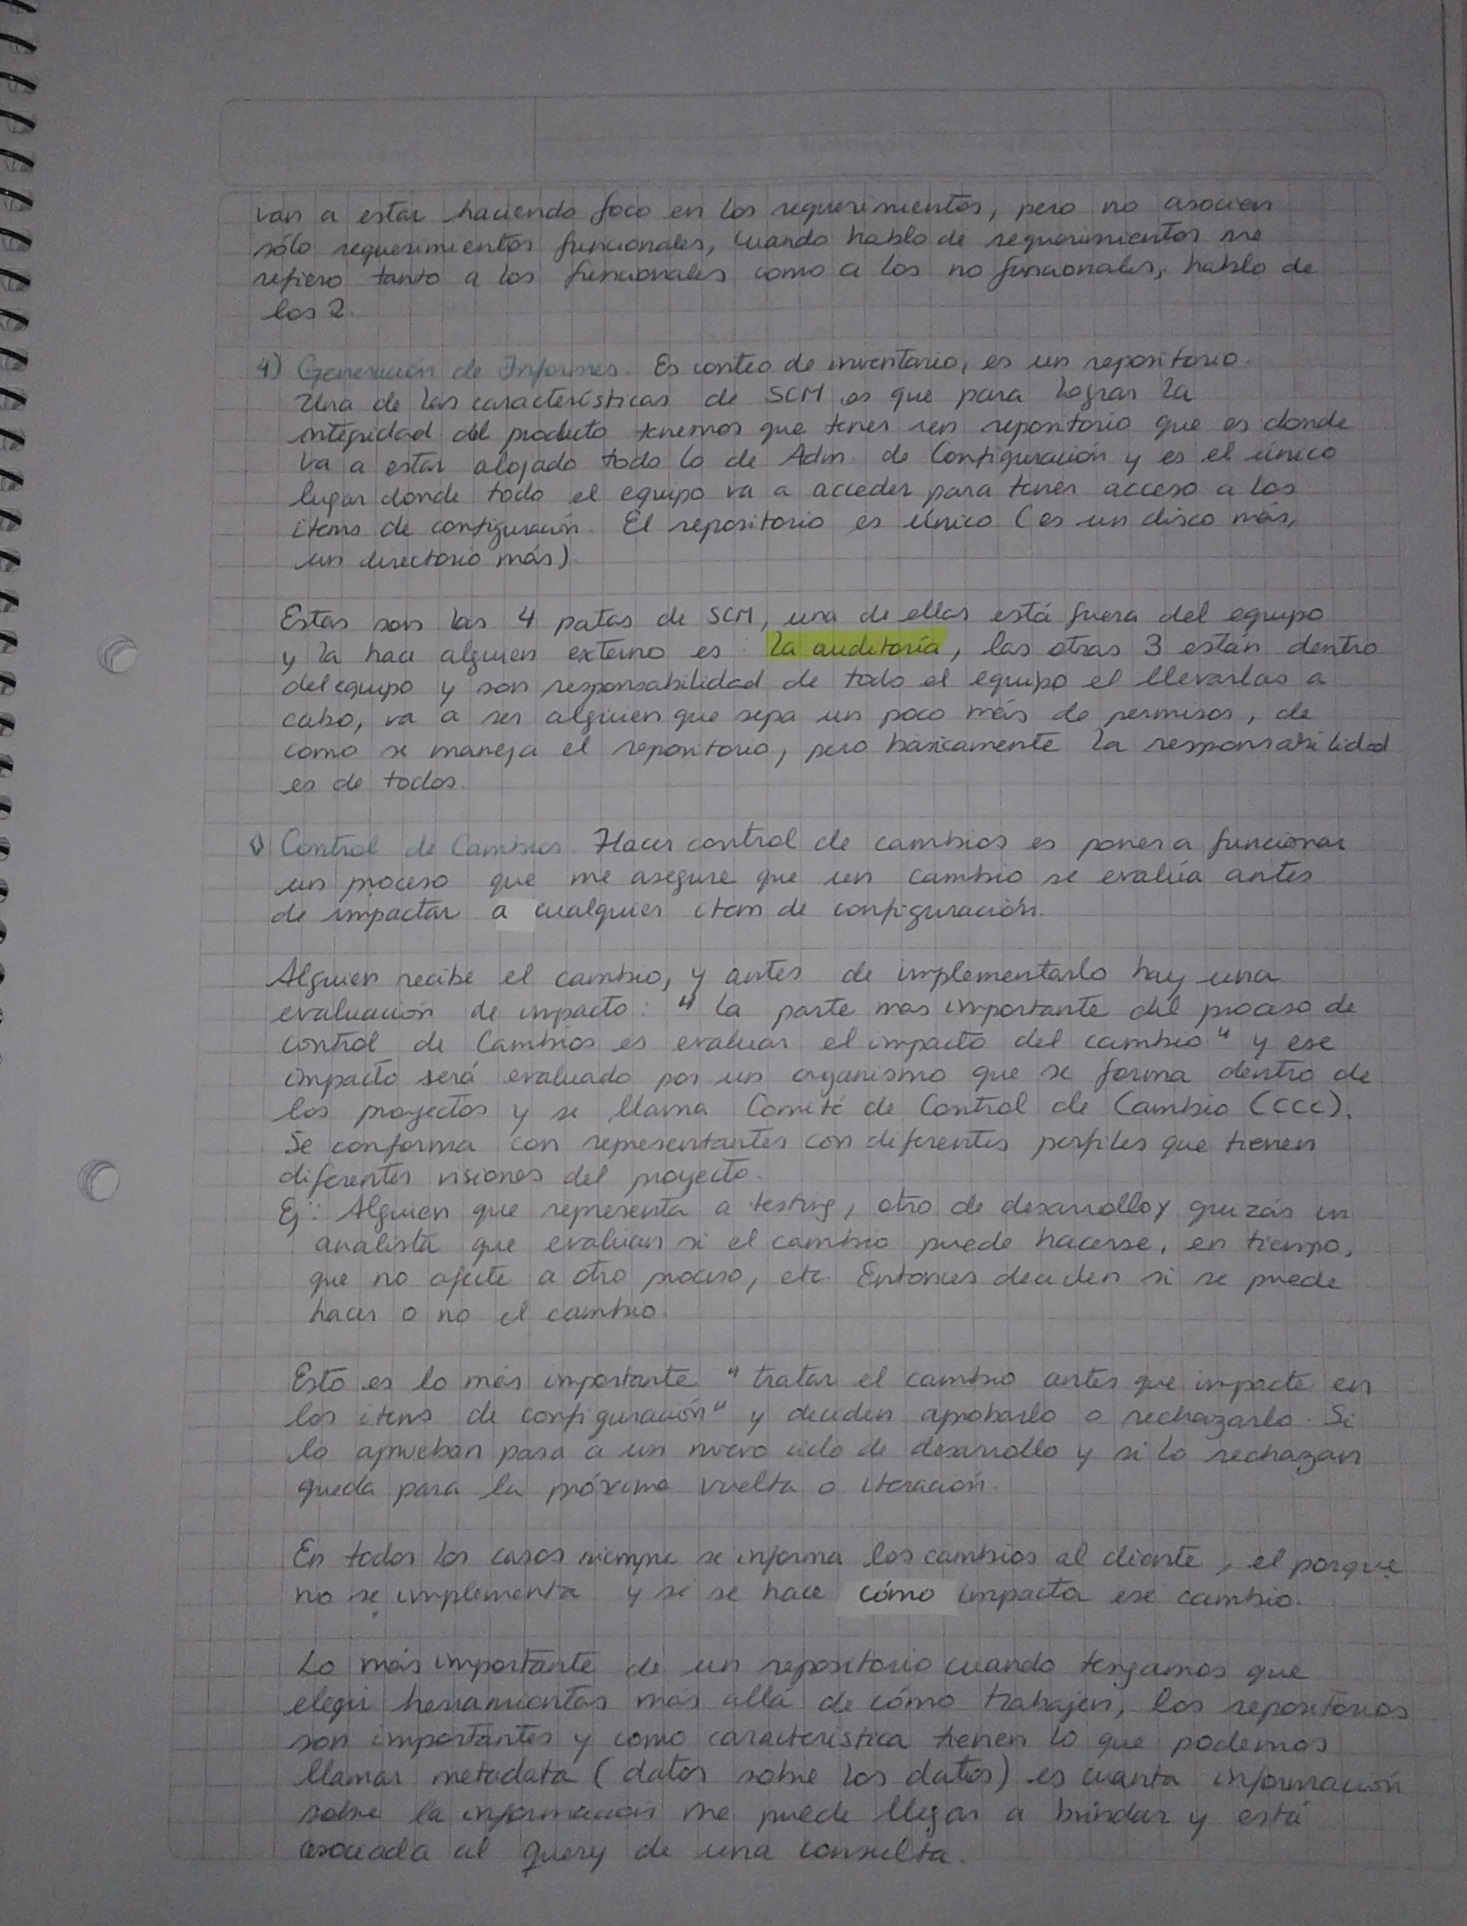 van a estar haciendo foco en los requerimientos, pero no asocien
sólo requerimientos funcionales, cuando hablo de requerimientos me
refiero tanto a los funcionales como a los no funcionales, hablo de
los 2.
4) Generación de Informes. Es conteo de inventario, es un repositorio.
Una de las características de SCM es que para lograr la
integridad del producto tenemos que tener un repositorio que es donde
va a estar alojado todo lo de Adm. de Configuración y es el único
lugar donde todo el equipo va a acceder para tener acceso a los
items de configuración. El repositorio es único (es un disco más,
un directorio más).
Estas son las 4 patas de SCM, una de ellas está fuera del equipo
y la hace alguien externo es: la auditoría, las otras 3 están dentro
del equipo y son responsabilidad de todo el equipo el llevarlas a
cabo, va a ser alguien que sepa un poco más de permisos, de
como se maneja el repositorio, pero básicamente la responsabilidad
es de todos.
Control de Cambios. Hacer control de cambios es poner a funcionar
un proceso que me asegure que un cambio se evalúa antes
de impactar a cualquier item de configuración.
Alguien recibe el cambio, y antes de implementarlo hay una
evaluación de impacto: "La parte mas importante del proceso de
control de Cambios es evaluar el impacto del cambio" y ese
impacto será evaluado por un organismo que se forma dentro de
los proyectos y se llama Comité de Control de Cambio (CCC).
Se conforma con representantes con diferentes perfiles que tienen
diferentes visiones del proyecto.
Ej: Alguien que representa a testing, otro de desarrollo y quizás un
analista que evalúan si el cambio puede hacerse, en tiempo,
que no afecte a otro proceso, etc. Entonces deciden si se puede
hacer o no el cambio.
Esto es lo más importante "tratar el cambio antes que impacte en
los items de configuración" y deciden aprobarlo o rechazarlo. Si
lo aprueban pasa a un nuevo ciclo de desarrollo y si lo rechazan
queda para la próxima vuelta o iteración.
En todos los casos siempre se informa los cambios al cliente, el porque
no se implementa y si se hace cómo impacta ese cambio.
Lo más importante de un repositorio cuando tengamos que
elegir herramientas más allá de cómo trabajen, los repositorios
son importantes y como característica tienen lo que podemos
llamar metadata (datos sobre los datos) es cuanta información
sobre la información me puede llegar a brindar y está
asociada al query de una consulta.